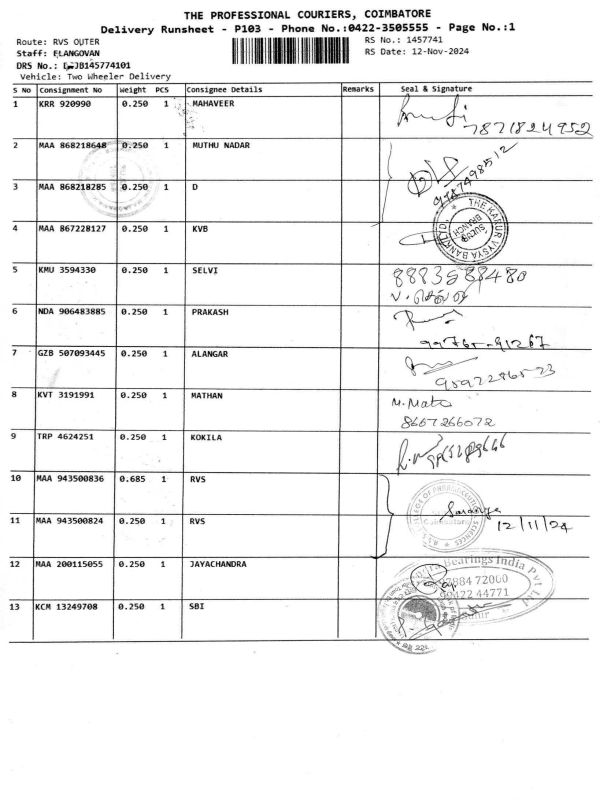 THE PROFESSIONAL COURIERS, COIMBATORE
Delivery Runsheet - P103 - Phone No.:0422-3505555 - Page No.:1
Route: RVS OUTER
RS No.: 1457741
Staff: ELANGOVAN
RS Date: 12-Nov-2024
DRS No.: JB145774101
Vehicle: Two Wheeler Delivery
S No Consignment No Weight PCS Consignee Details Remarks Seal & Signature
1 KRR 920990 0.250 1 MAHAVEER
7871824952
2 MAA 868218648 0.250 1 MUTHU NADAR
9787498512
3 MAA 868218285 0.250 1 D
4 MAA 867228127 0.250 1 KVB
THE KARUR VYSYA BANK LTD.
SULUR BRANCH
5 KMU 3594330 0.250 1 SELVI
8883588480
6 NDA 906483885 0.250 1 PRAKASH
99765-91267
7 GZB 507093445 0.250 1 ALANGAR
8 KVT 3191991 0.250 1 MATHAN
M. Mato
8667266072
9 TRP 4624251 0.250 1 KOKILA
10 MAA 943500836 0.685 1 RVS
COLLEGE OF PHARMACEUTICAL SCIENCES
Saranya
11 MAA 943500824 0.250 1 RVS
12/11/24
12 MAA 200115055 0.250 1 JAYACHANDRA
Bearings India Pvt Ltd
97884 72000
99422 44771
Sulur
13 KCM 13249708 0.250 1 SBI